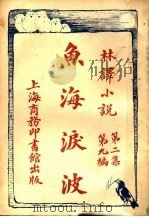 林譯小説
第二集
第九編
魚海淚波
上海商務印書館出版